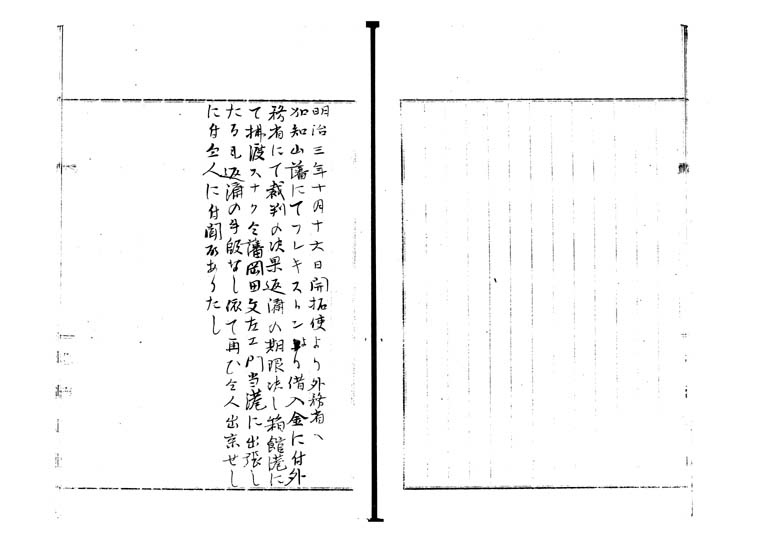 明治三年十月十六日開拓使より外務省へ
加知山藩にてフレキストンより借入金に付外
務省にて裁判の決果返済の期限決し箱館港に
て払渡スナク仝藩岡田文左エ門当港に出張し
たるも返済の手段なし依て再び仝人出京せし
に付仝人に付聞あうたし